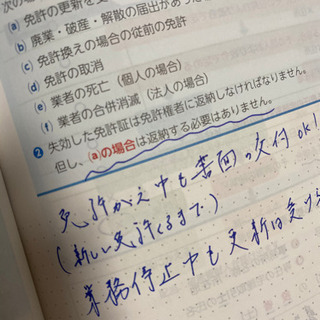 次の場
ⓐ 免許の更新を受
ⓑ 廃業・破産・解散の届出があった
ⓒ 免許換えの場合の従前の免許
ⓓ 免許の取消
ⓔ 業者の死亡（個人の場合）
ⓕ 業者の合併消滅（法人の場合）
❷ 失効した免許証は免許権者に返納しなければなりません。
但し、ⓐの場合は返納する必要はありません。
免許がえ中も書面の交付ok!
(新しい免許くるまで)
業務停止中も更新は受け